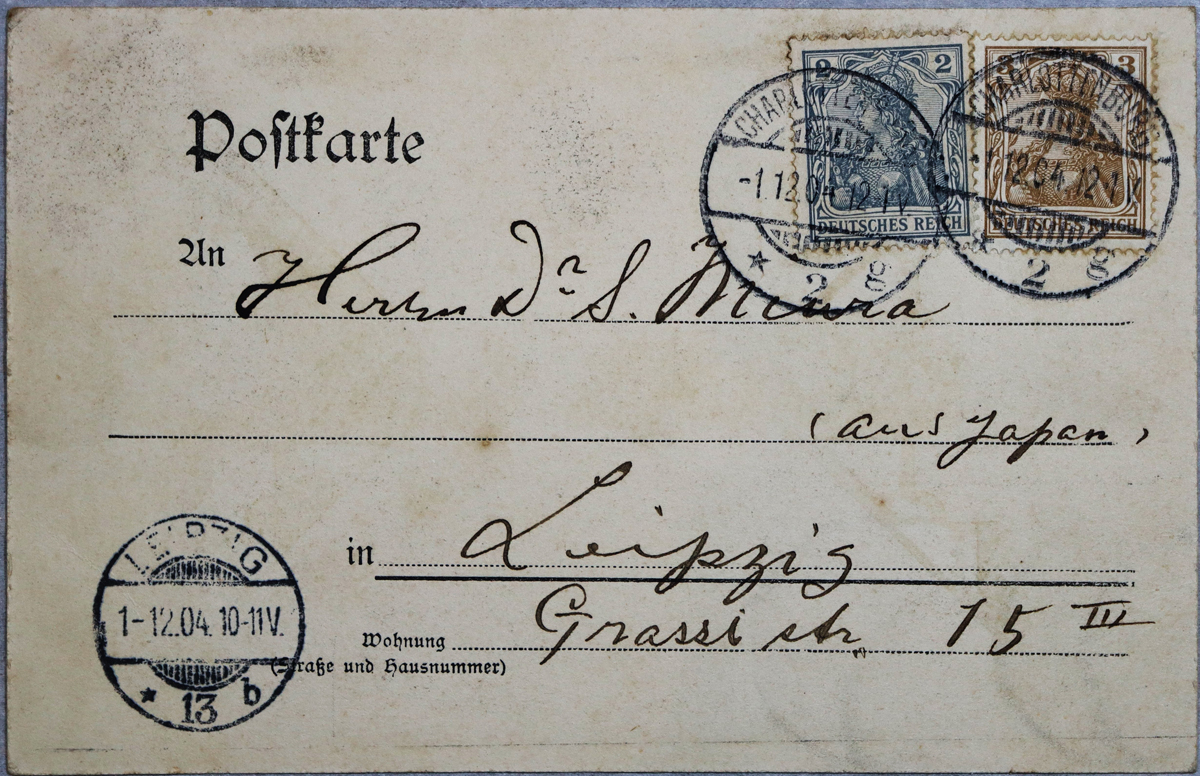 Postkarte
2 2
3 3
DEUTSCHES REICH
DEUTSCHES REICH
CHARLOTTENBURG
-1.12.04.12-1V
* 2 g
CHARLOTTENBURG
-1.12.04.12-1V
* 2 g
An Herrn Dr. S. Miura
(aus Japan)
in Leipzig
Wohnung Grassistr. 15 III
(Straße und Hausnummer)
LEIPZIG
1-12.04. 10-11V.
* 13 b